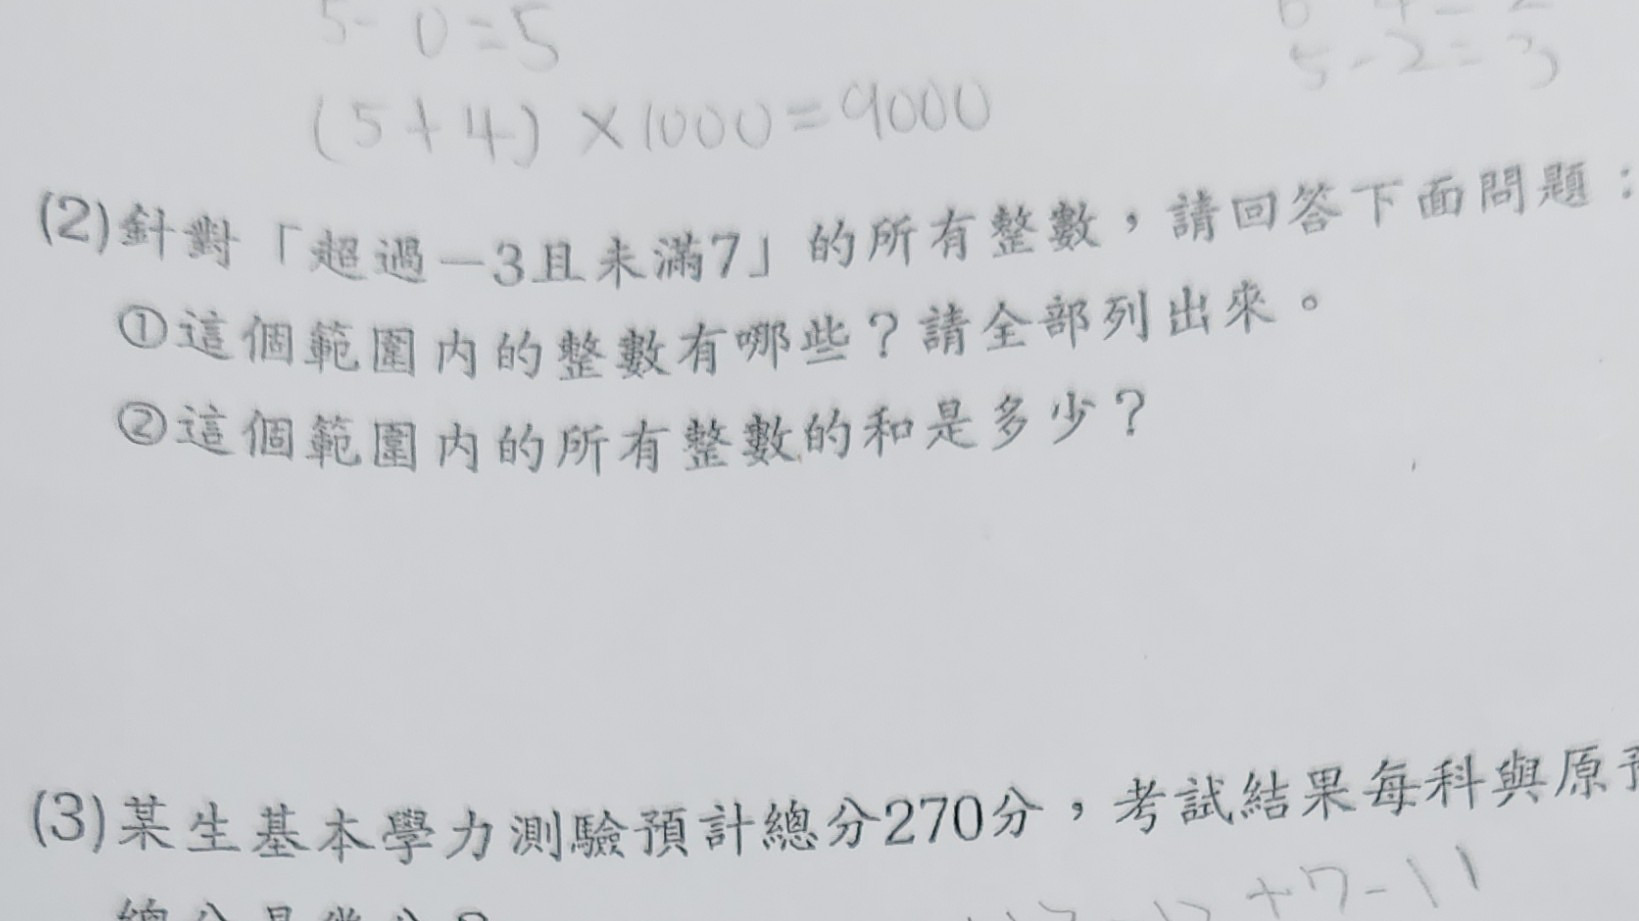 5-0=5
5-2=3
(5+4)×1000=9000
(2)針對「超過－3且未滿7」的所有整數，請回答下面問題：
①這個範圍內的整數有哪些？請全部列出來。
②這個範圍內的所有整數的和是多少？
(3)某生基本學力測驗預計總分270分，考試結果每科與原
+7-11